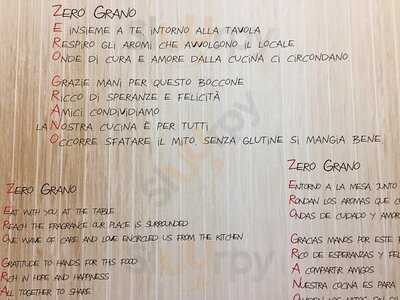 Zero Grano
E insieme a te intorno alla tavola
Respiro gli aromi che avvolgono il locale
Onde di cura e amore dalla cucina ci circondano
Grazie mani per questo boccone
Ricco di speranze e felicità
Amici condividiamo
la Nostra cucina è per tutti
Occorre sfatare il mito, senza glutine si mangia bene
Zero Grano
Eat with you at the table
Reach the fragrance our place is surrounded
One wave of care and love encircled us from the kitchen
Gratitude to hands for this food
Rich in hope and happiness
All together to share
Zero Grano
Entorno a la mesa junto
Rondan los aromas que
Ondas de cuidado y amor
Gracias manos por este
Rico de esperanzas y fel
A compartir amigos
Nuestra cocina es para